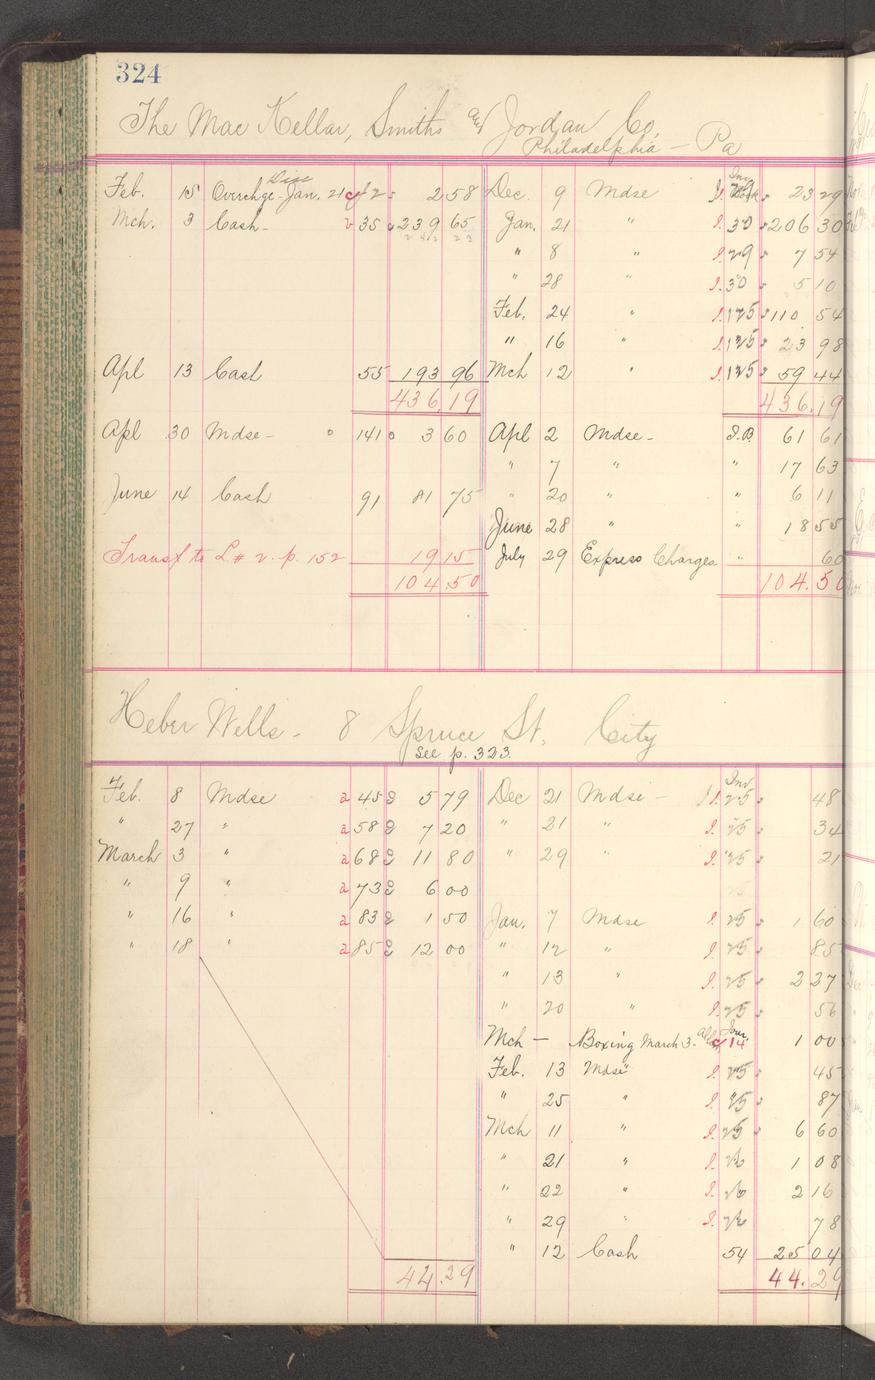 324
The Mac Kellar, Smiths and Jordan Co,
Philadelphia — Pa
Feb. 15 Overchge - Disc Jan. 21 2 2 58 Dec. 9 Mdse 23 29
Mch. 3 Cash - 35 239 65 Jan. 21 " 30 206 30
" 8 " 29 7 54
" 28 " 30 5 10
Feb. 24 " 125 110 54
" 16 " 125 23 98
Apl 13 Cash 55 193 96 Mch 12 " 125 59 44
436.19 436.19
Apl 30 Mdse - 141 3 60 Apl 2 Mdse - I.B. 61 61
" 7 " " 17 63
June 14 Cash 91 81 75 " 20 " " 6 11
June 28 " " 18 55
Transf to L # 2. p. 152 19 15 July 29 Express Charges " 60
104.50 104.50
Heber Wells - 8 Spruce St. City
See p. 323.
Feb. 8 Mdse a 45 5 79 Dec 21 Mdse - Inv 25 48
" 27 " a 58 7 20 " 21 " 25 34
March 3 " a 68 11 80 " 29 " 25 21
" 9 " a 73 6 00 25
" 16 " a 83 1 50 Jan. 7 Mdse 25 1 60
" 18 " a 85 12 00 " 12 " 25 85
" 13 " 25 2 27
" 20 " 25 56
Mch — Boxing March 3. Jour 14 1 00
Feb. 13 Mdse 25 45
" 25 " 25 87
Mch 11 " 25 6 60
" 21 " 26 1 08
" 22 " 26 2 16
" 29 " 26 78
" 12 Cash 54 25 04
44.29 44.29